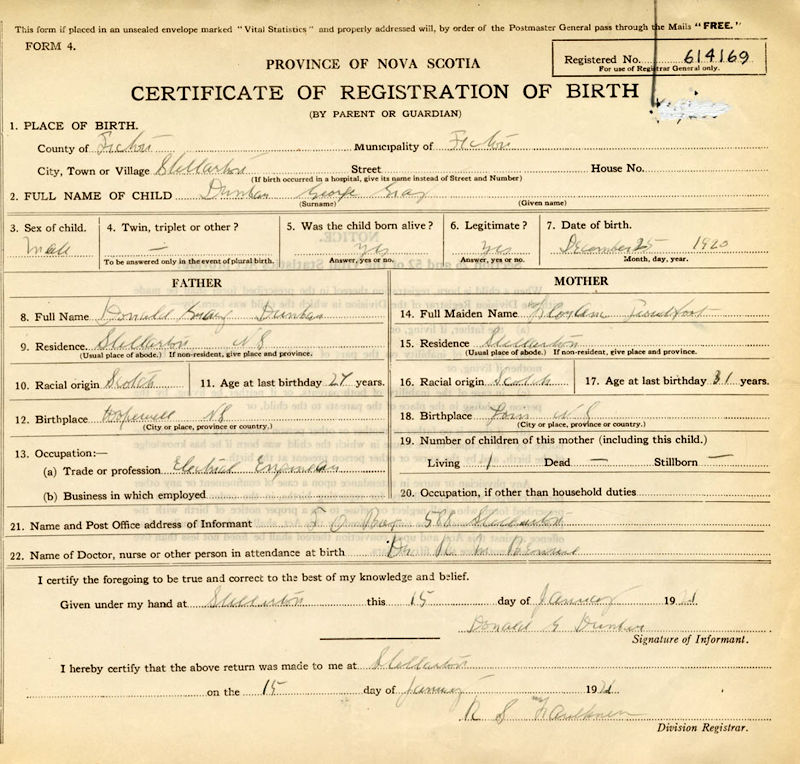 This form if placed in an unsealed envelope marked "Vital Statistics" and properly addressed will, by order of the Postmaster General pass through the Mails "FREE."
FORM 4.
Registered No. 614169
For use of Registrar General only.
PROVINCE OF NOVA SCOTIA
CERTIFICATE OF REGISTRATION OF BIRTH
(BY PARENT OR GUARDIAN)
1. PLACE OF BIRTH.
County of Pictou Municipality of Pictou
City, Town or Village Stellarton Street House No.
(If birth occurred in a hospital, give its name instead of Street and Number)
2. FULL NAME OF CHILD Dunbar George Gray
(Surname) (Given name)
3. Sex of child. 4. Twin, triplet or other ? 5. Was the child born alive? 6. Legitimate ? 7. Date of birth.
Male — Yes Yes December 25 1920
To be answered only in the event of plural birth. Answer, yes or no. Answer, yes or no. Month, day, year.
FATHER
8. Full Name Donald Gray Dunbar
9. Residence Stellarton NS
(Usual place of abode.) If non-resident, give place and province.
10. Racial origin Scotch 11. Age at last birthday 27 years.
12. Birthplace Hopewell NS
(City or place, province or country.)
13. Occupation:—
(a) Trade or profession Electrical Engineer
(b) Business in which employed
MOTHER
14. Full Maiden Name Proudfoot
15. Residence Stellarton
(Usual place of abode.) If non-resident, give place and province.
16. Racial origin Scotch 17. Age at last birthday 31 years.
18. Birthplace N S
(City or place, province or country.)
19. Number of children of this mother (including this child.)
Living 1 Dead — Stillborn —
20. Occupation, if other than household duties
21. Name and Post Office address of Informant P O Box 588 Stellarton
22. Name of Doctor, nurse or other person in attendance at birth Dr
I certify the foregoing to be true and correct to the best of my knowledge and belief.
Given under my hand at Stellarton this 15 day of January 1921
Donald G Dunbar
Signature of Informant.
I hereby certify that the above return was made to me at Stellarton
on the 15 day of January 1921
R S Faulkner
Division Registrar.